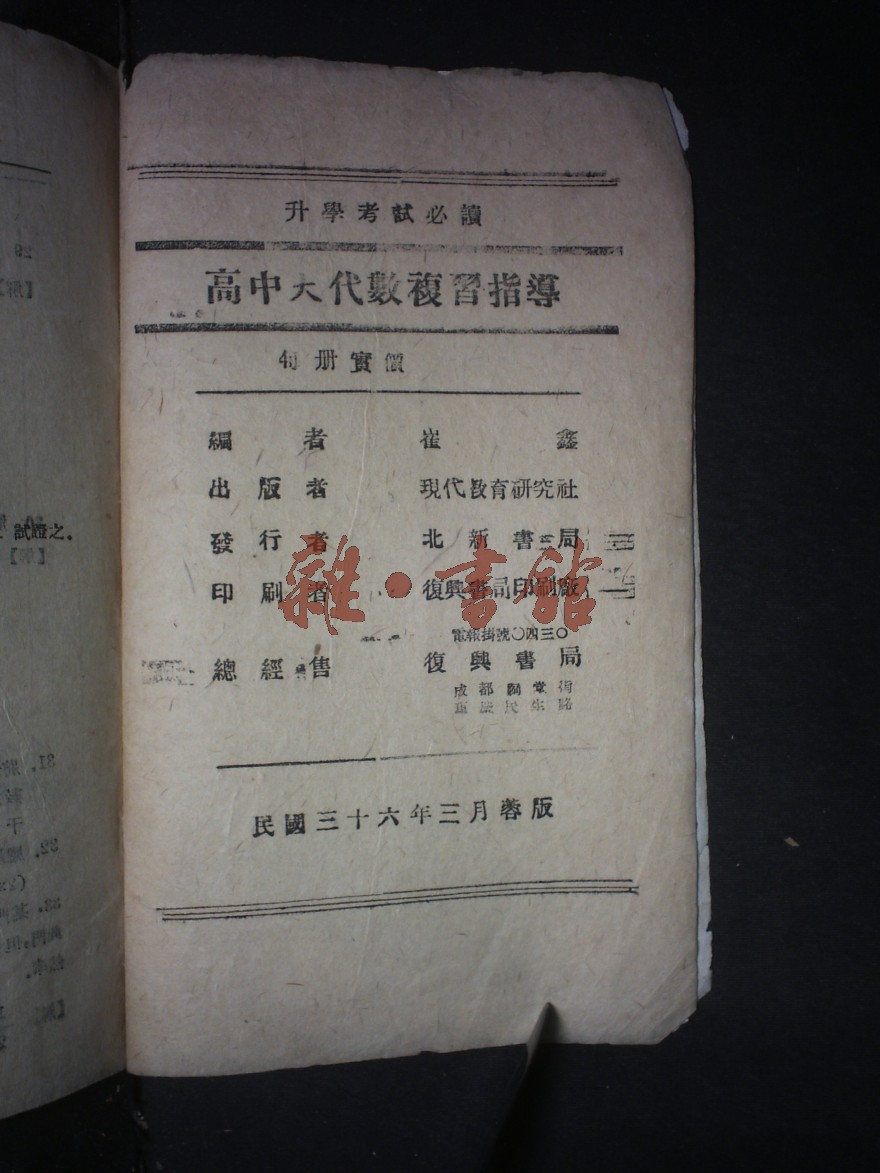 升學考試必讀
高中大代數複習指導
每册實價
編者 崔鑫
出版者 現代教育研究社
發行者 北新書局
印刷者 復興書局印刷廠
電報掛號〇四三〇
總經售 復興書局
成都祠堂街
重慶民生路
民國三十六年三月蓉版
雜·書館
試證之.
31.
32.
33.